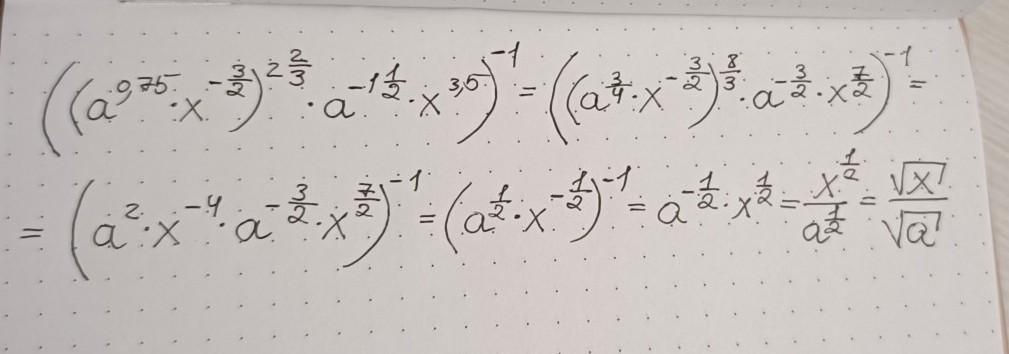 ((a^0,75 · x^-3/2)^2 2/3 · a^-1 1/2 · x^3,5)^-1 = ((a^3/4 · x^-3/2)^8/3 · a^-3/2 · x^7/2)^-1 =
= (a^2 · x^-4 · a^-3/2 · x^7/2)^-1 = (a^1/2 · x^-1/2)^-1 = a^-1/2 · x^1/2 = x^1/2 / a^1/2 = √x / √a